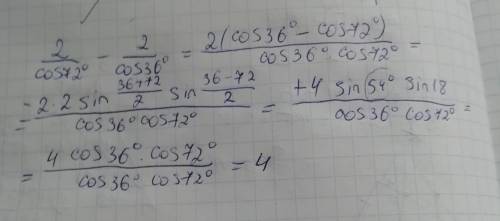 2/cos72° - 2/cos36° = 2(cos36° - cos72°)/cos36° · cos72° =
= -2·2 sin 36+72/2 sin 36-72/2 / cos36° cos72° = +4 sin54° sin18/cos36° cos72° =
= 4 cos36° · cos72°/cos36° · cos72° = 4